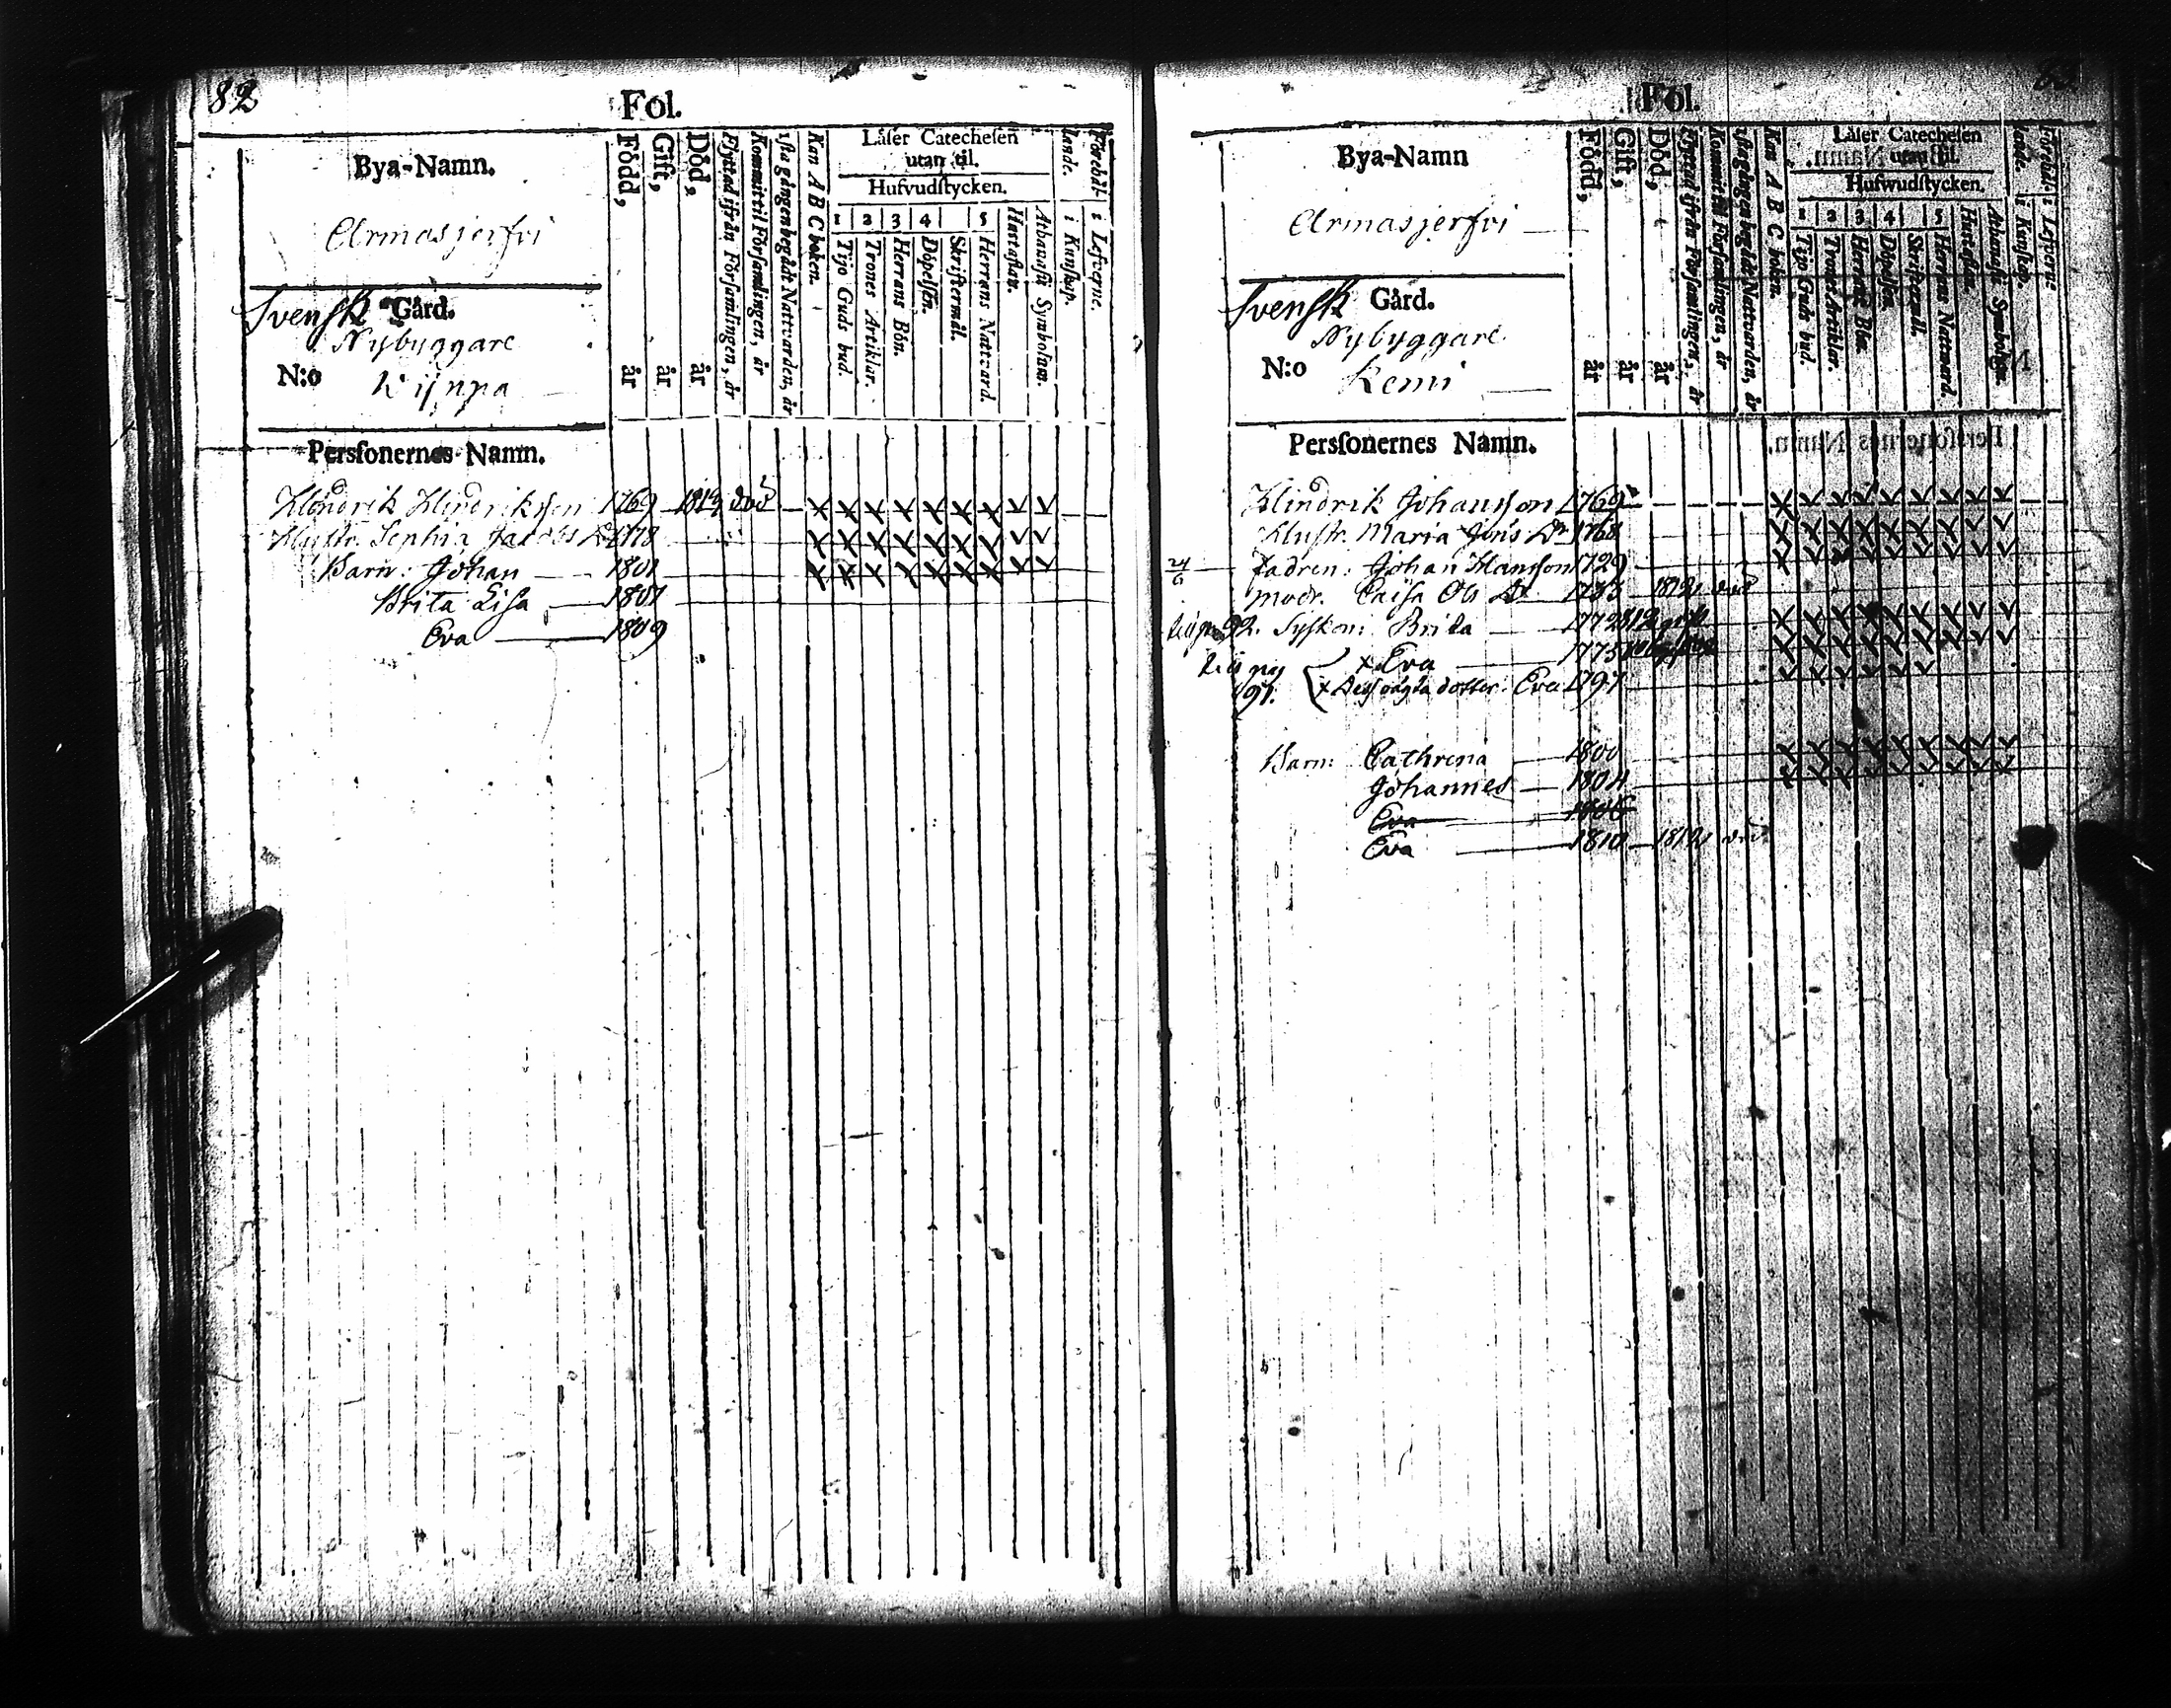 82
Fol.
Bya-Namn.
Armasjerfvi
Svensk Gård.
Nybyggare
N:o Kijnpa
Född, år
Gift, år
Död, år
Flyttad ifrån Församlingen, år
Kommit til Församlingen, år
1sta gången begådt Nattvarden, år
Kan A B C boken.
Läser Catechesen
utan til.
Hufvudstycken.
1 2 3 4 5
Tijo Guds bud.
Trones Artiklar.
Herrans Bön.
Döpelsen.
Skriftermål.
Herrans Nattvard.
Hustaflan.
Athanasii Symbolum.
Förehållande. i Kunskap.
i Lefverne.
Personernes Namn.
Hindrik Hindriksson 1769 död x x x x x x x v v
Hustr. Sophia Jacobs Dr 1778 x x x x x x x v v
Barn: Johan 1801 x x x x x x x v v
Brita Lisa 1807
Eva 1809
Fol.
Bya-Namn
Armasjerfvi
Svensk Gård.
Nybyggare
N:o Kemi
Född, år
Gift, år
Död, år
Flyttad ifrån Församlingen, år
Kommit til Församlingen, år
1sta gången begådt Nattvarden, år
Kan A B C boken.
Läser Catechesen
utan til.
Hufwudstycken.
1 2 3 4 5
Tijo Guds bud.
Trones Artiklar.
Herrans Bön.
Döpelsen.
Skriftermål.
Herrans Nattward.
Hustaflan.
Athanasii Symbolum.
i Kunskap.
i Lefverne.
Personernes Namn.
Hindrik Johansson 1769
Hustr. Maria Jöns Dr 1768
Fadren: Johan Hansson 1729
Modr. Caisa Ols Dr 1733 1812 död
92. Syskon: Brita 1772
x Eva 1775
91. x Dess oägta dotter. Eva 1797
Barn: Cathrina 1800
Johannes 1804
Eva 1806
Eva 1810 1812 död